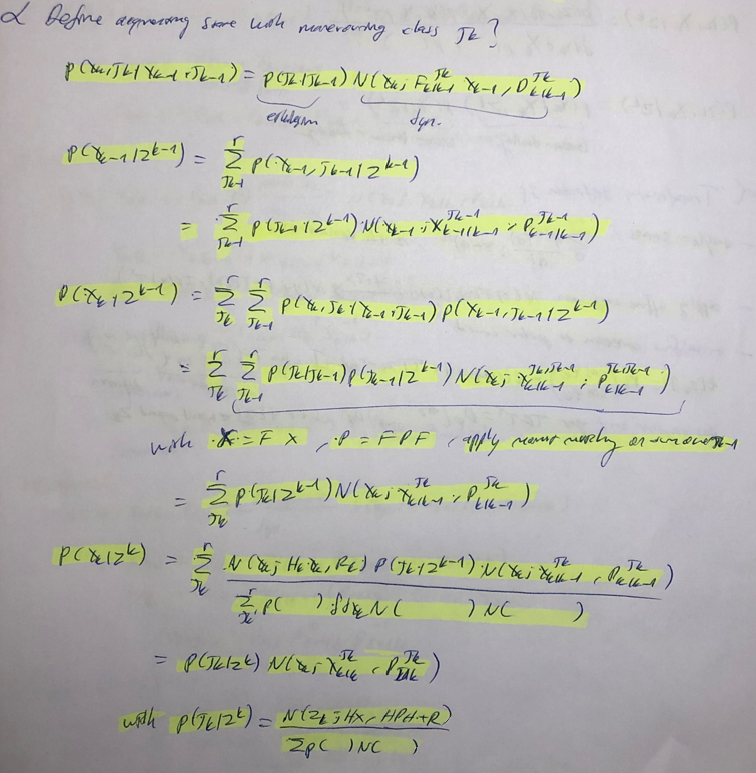 α Define augmenting state with maneuvering class Jk?
P(xk, Jk | xk-1, Jk-1) = P(Jk | Jk-1) N(xk; F_{k|k-1}^{Jk} xk-1, D_{k|k-1}^{Jk})
dyn.
P(xk-1 | Z^{k-1}) = Σ_{Jk-1}^{r} P(xk-1, Jk-1 | Z^{k-1})
= Σ_{Jk-1}^{r} P(Jk-1 | Z^{k-1}) N(xk-1; x_{k-1|k-1}^{Jk-1}, P_{k-1|k-1}^{Jk-1})
P(xk | Z^{k-1}) = Σ_{Jk}^{r} Σ_{Jk-1}^{r} P(xk, Jk | xk-1, Jk-1) P(xk-1, Jk-1 | Z^{k-1})
= Σ_{Jk}^{r} Σ_{Jk-1}^{r} P(Jk | Jk-1) P(Jk-1 | Z^{k-1}) N(xk; x_{k|k-1}^{Jk,Jk-1}, P_{k|k-1}^{Jk,Jk-1})
with x = F x, P = F P F, apply moment matching on sum over Jk-1
= Σ_{Jk}^{r} P(Jk | Z^{k-1}) N(xk; x_{k|k-1}^{Jk}, P_{k|k-1}^{Jk})
P(xk | Z^k) = Σ_{Jk}^{r} N(zk; Hk xk, Rk) P(Jk | Z^{k-1}) N(xk; x_{k|k-1}^{Jk}, P_{k|k-1}^{Jk})
Σ_{Jk}^{r} P( ) ∫dxk N( ) N( )
= P(Jk | Z^k) N(xk; x_{k|k}^{Jk}, P_{k|k}^{Jk})
with P(Jk | Z^k) = N(zk; Hx, HPH+R)
ΣP( ) N( )